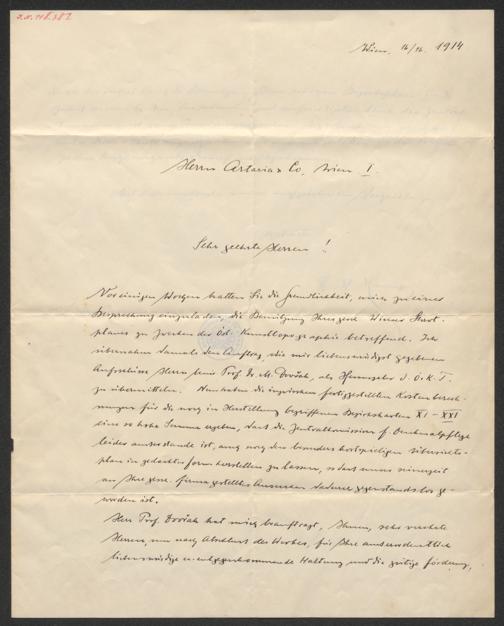 Wien, 16/12. 1914
Herrn Artaria & Co, Wien I.
Sehr geehrte Herren!
Vor einigen Wochen hatten Sie die Freundlichkeit, mich zu einer
Besprechung einzuladen, die Benützung Ihres gesch. Wiener Stadt-
planes zu Zwecken der Öst. Kunsttopographie betreffend. Ich
übernahm damals den Auftrag, die mir liebenswürdigst gegebenen
Aufschlüsse Herrn Prof. Dr. M. Dvořák, als Herausgeber d. Ö. K. T.
zu übermitteln. Nun haben die inzwischen fertiggestellten Kostenberech-
nungen für die noch in Herstellung begriffenen Bezirkskarten XI – XXI
eine so hohe Summe ergeben, dass die Zentralkommission f. Denkmalpflege
leider ausserstande ist, auch noch den besonders kostspieligen Übersichts-
plan in gedachter Form herstellen zu lassen, so dass unser seinerzeit
an Ihre gesch. Firma gestelltes Ansuchen dadurch gegenstandslos ge-
worden ist.
Herr Prof. Dvořák hat mich beauftragt, Ihnen, sehr verehrte
Herren, nun nach Abschluss des Werkes, für Ihre ausserordentlich
liebenswürdige u. entgegenkommende Haltung und die gütige Förderung,